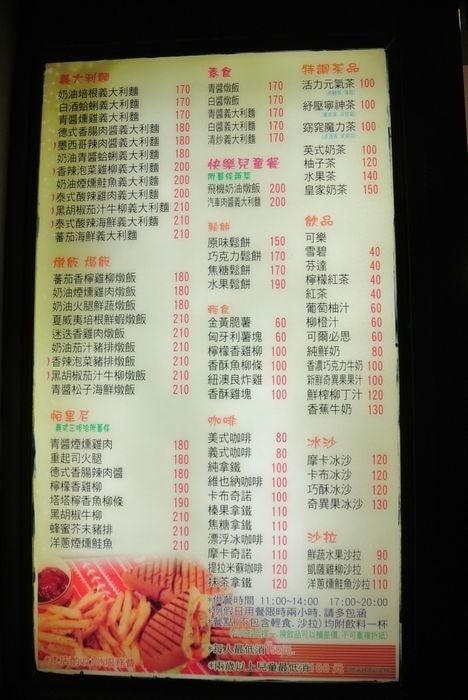 義大利麵
奶油培根義大利麵 170
白酒蛤蜊義大利麵 170
青醬燻雞義大利麵 170
德式香腸肉醬義大利麵 180
墨西哥辣肉醬義大利麵 180
奶油青醬蛤蜊義大利麵 180
香辣泡菜雞柳義大利麵 200
奶油煙燻鮭魚義大利麵 200
泰式酸辣雞肉義大利麵 200
黑胡椒茄汁牛柳義大利麵 210
泰式酸辣海鮮義大利麵 210
蕃茄海鮮義大利麵 210
燉飯 焗飯
蕃茄香檸雞柳燉飯 180
奶油煙燻雞肉燉飯 180
奶油火腿鮮蔬燉飯 180
夏威夷培根鮮蝦燉飯 210
迷迭香雞肉燉飯 210
奶油茄汁豬排燉飯 210
香辣泡菜豬排燉飯 210
黑胡椒茄汁牛柳燉飯 210
青醬松子海鮮燉飯 210
帕里尼
義式三明治附薯條
青醬煙燻雞肉 180
重起司火腿 180
德式香腸辣肉醬 180
檸檬香雞柳 190
塔塔檸香魚柳條 190
黑胡椒牛柳 210
蜂蜜芥末豬排 210
洋蔥煙燻鮭魚 210
素食
青醬燉飯 170
白醬燉飯 170
青醬義大利麵 170
白醬義大利麵 170
清炒義大利麵 170
快樂兒童餐
附薯條蔬菜
飛機奶油燉飯 200
汽車肉醬義大利麵 200
鬆餅
原味鬆餅 150
巧克力鬆餅 170
焦糖鬆餅 170
水果鬆餅 190
輕食
金黃脆薯 60
匈牙利薯塊 60
檸檬香雞柳 100
香酥魚柳條 100
紐澳良炸雞 100
香酥雞塊 100
咖啡
美式咖啡 80
義式咖啡 80
純拿鐵 100
維也納咖啡 100
卡布奇諾 100
榛果拿鐵 110
焦糖拿鐵 110
漂浮冰咖啡 110
摩卡奇諾 110
提拉米蘇咖啡 120
抹茶拿鐵 120
特調茶品
活力元氣茶 100
紓壓寧神茶 100
窈窕魔力茶 100
英式奶茶 100
柚子茶 120
水果茶 140
皇家奶茶 150
飲品
可樂
雪碧 40
芬達 40
檸檬紅茶 40
紅茶 40
葡萄柚汁 60
柳橙汁 60
可爾必思 60
純鮮奶 80
香濃巧克力牛奶 100
新鮮奇異果果汁 100
鮮榨柳丁汁 120
香蕉牛奶 130
冰沙
摩卡冰沙 120
卡布冰沙 120
巧酥冰沙 120
奇異果冰沙 130
沙拉
鮮蔬水果沙拉 90
凱薩雞柳沙拉 110
洋蔥燻鮭魚沙拉 110
*供餐時間 11:00~14:00 17:00~20:00
*例假日用餐限時兩小時,請多包涵
*餐點(不包含輕食、沙拉)均附飲料一杯
換飲品可以補差價,不可重複折抵)
*每人最低消
*兩歲以上兒童最低消 100元